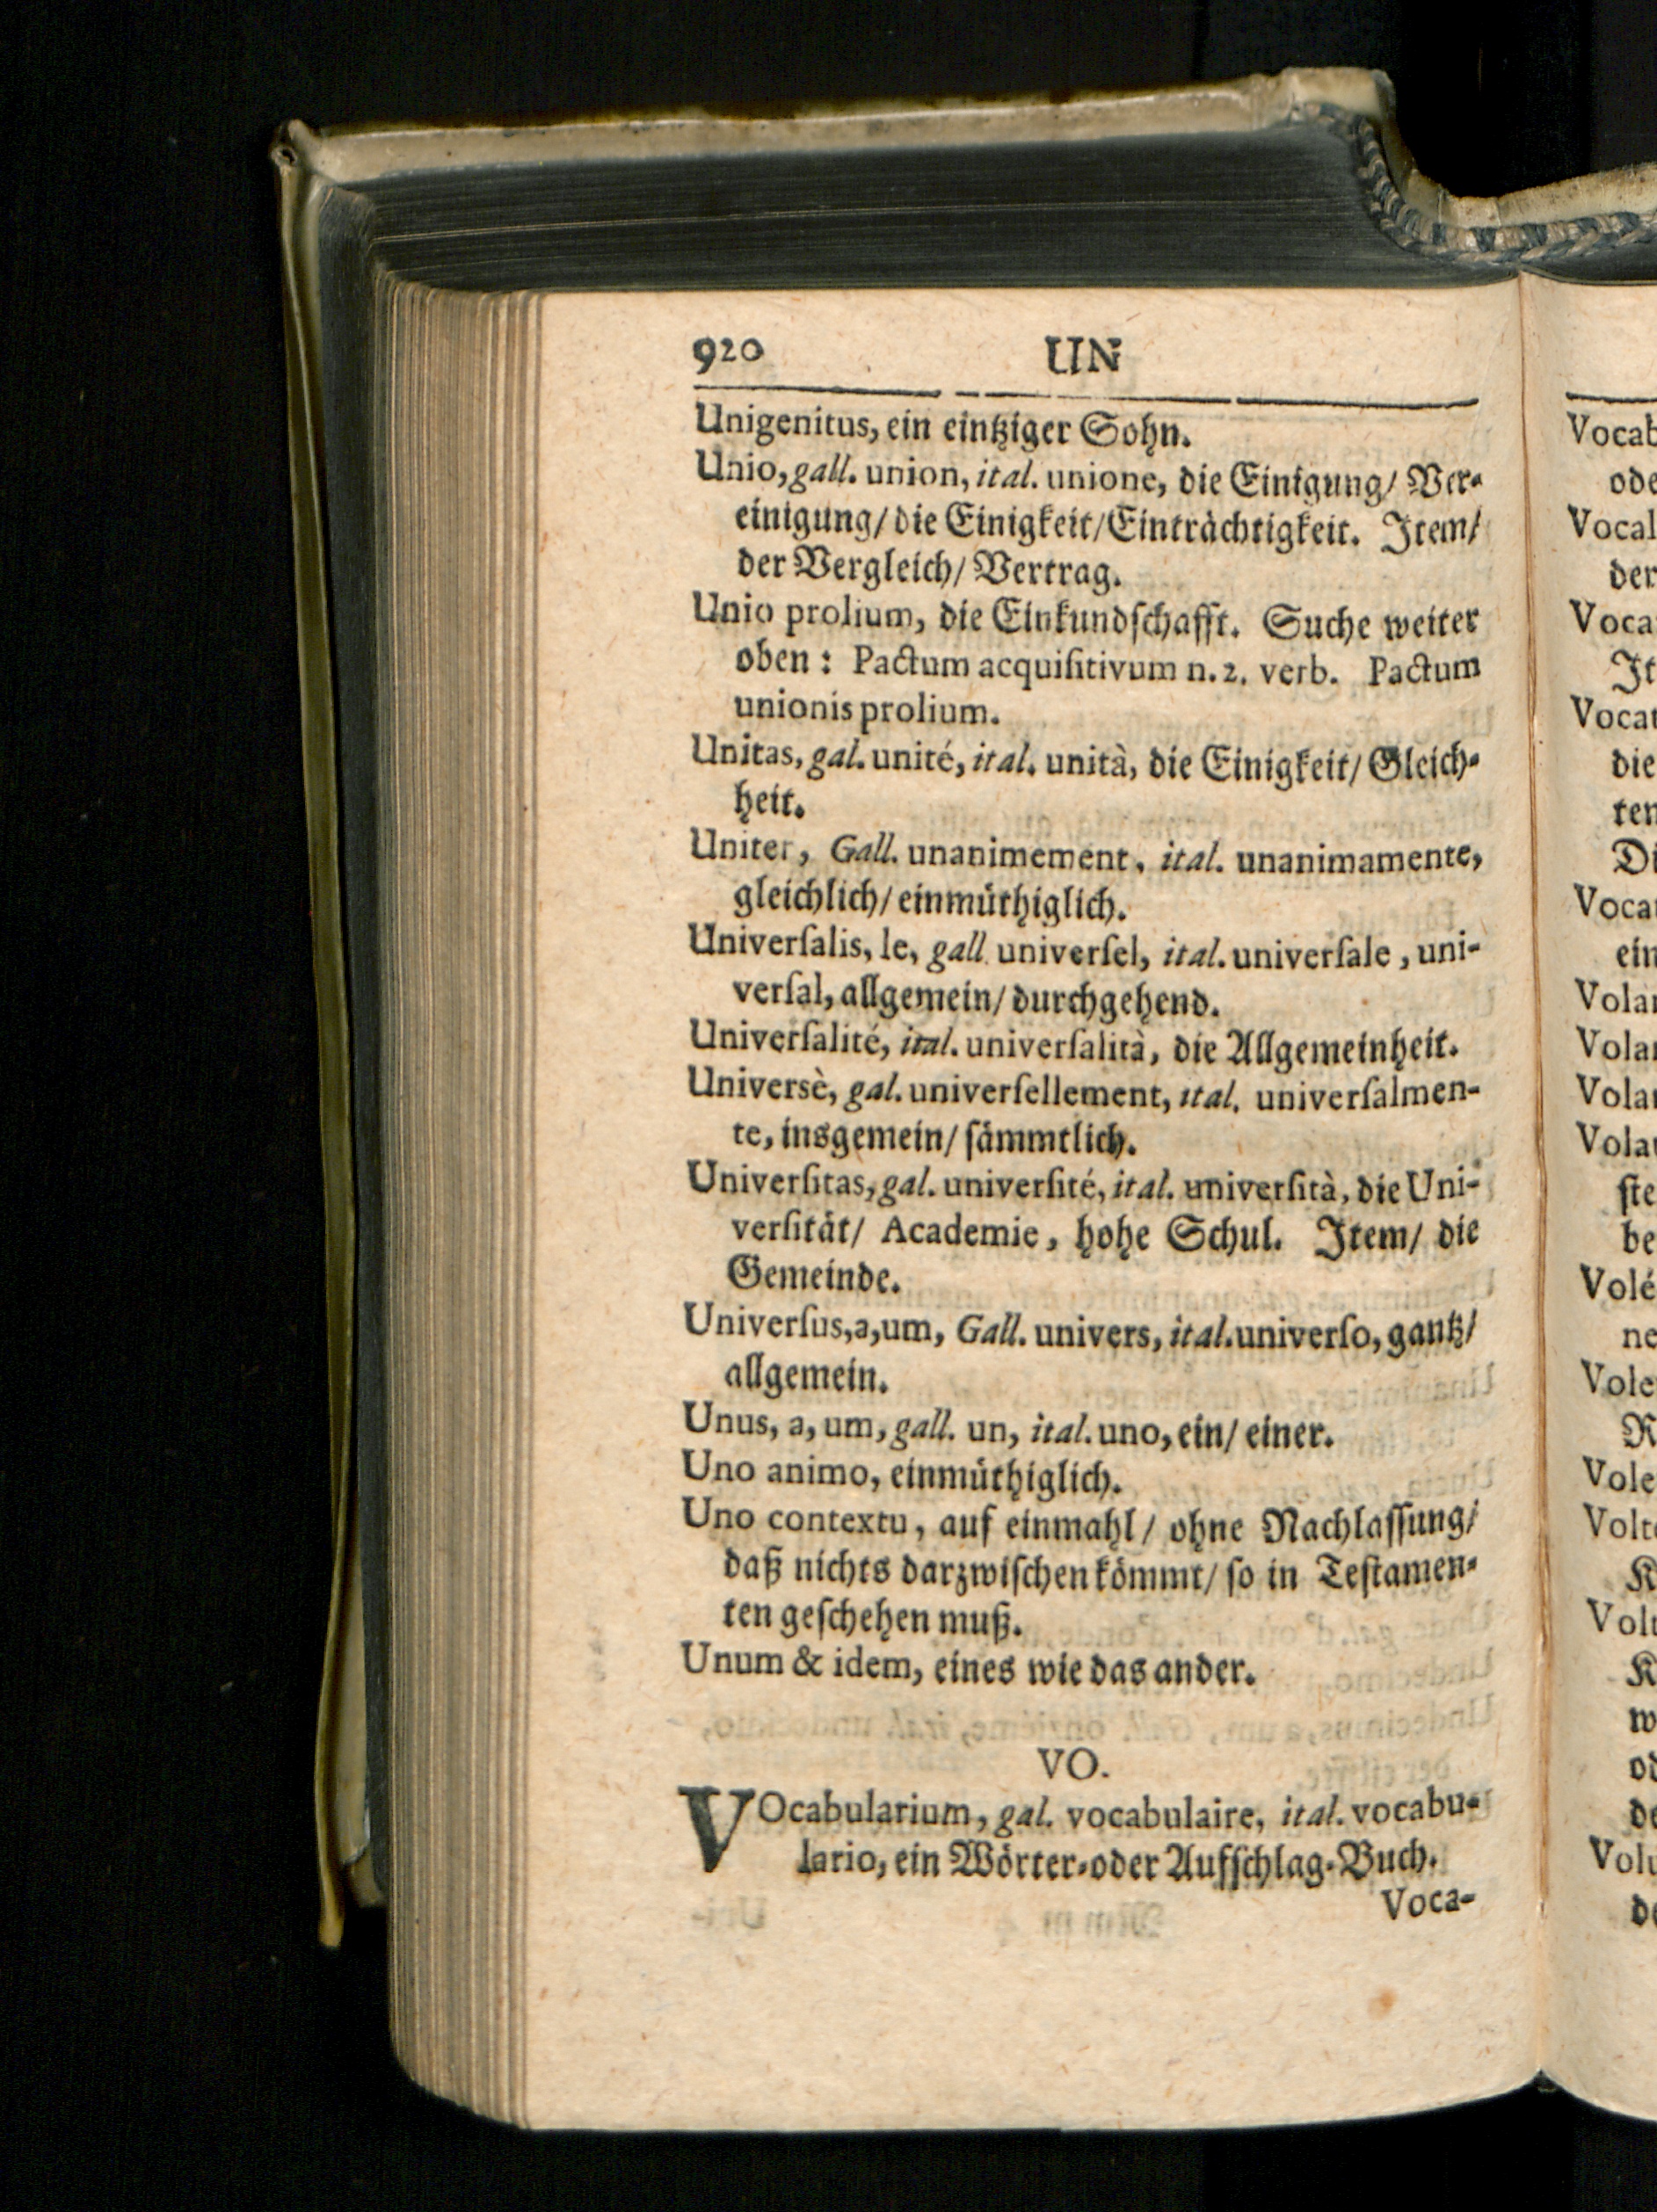 920 UN
Unigenitus, ein eintziger Sohn.
Unio, gall. union, ital. unione, die Einigung/ Ver-
einigung/ die Einigkeit/ Einträchtigkeit. Item/
der Vergleich/ Vertrag.
Unio prolium, die Einkundſchafft. Suche weiter
oben: Pactum acquiſitivum n. 2. verb. Pactum
unionis prolium.
Unitas, gal. unité, ital. unità, die Einigkeit/ Gleich-
heit.
Uniter, Gall. unanimement, ital. unanimamente,
gleichlich/ einmüthiglich.
Univerſalis, le, gall. univerſel, ital. univerſale, uni-
verſal, allgemein/ durchgehend.
Univerſalité, ital. univerſalità, die Allgemeinheit.
Universè, gal. univerſellement, ital. univerſalmen-
te, insgemein/ ſämmtlich.
Univerſitas, gal. univerſité, ital. univerſità, die Uni-
verſität/ Academie, hohe Schul. Item/ die
Gemeinde.
Univerſus, a, um, Gall. univers, ital. univerſo, gantz/
allgemein.
Unus, a, um, gall. un, ital. uno, ein/ einer.
Uno animo, einmüthiglich.
Uno contextu, auf einmahl/ ohne Nachlaſſung/
daß nichts darzwiſchen kömmt/ ſo in Teſtamen-
ten geſchehen muß.
Unum & idem, eines wie das ander.
VO.
VOcabularium, gal. vocabulaire, ital. vocabu-
lario, ein Wörter-oder Aufſchlag-Buch.
Voca-